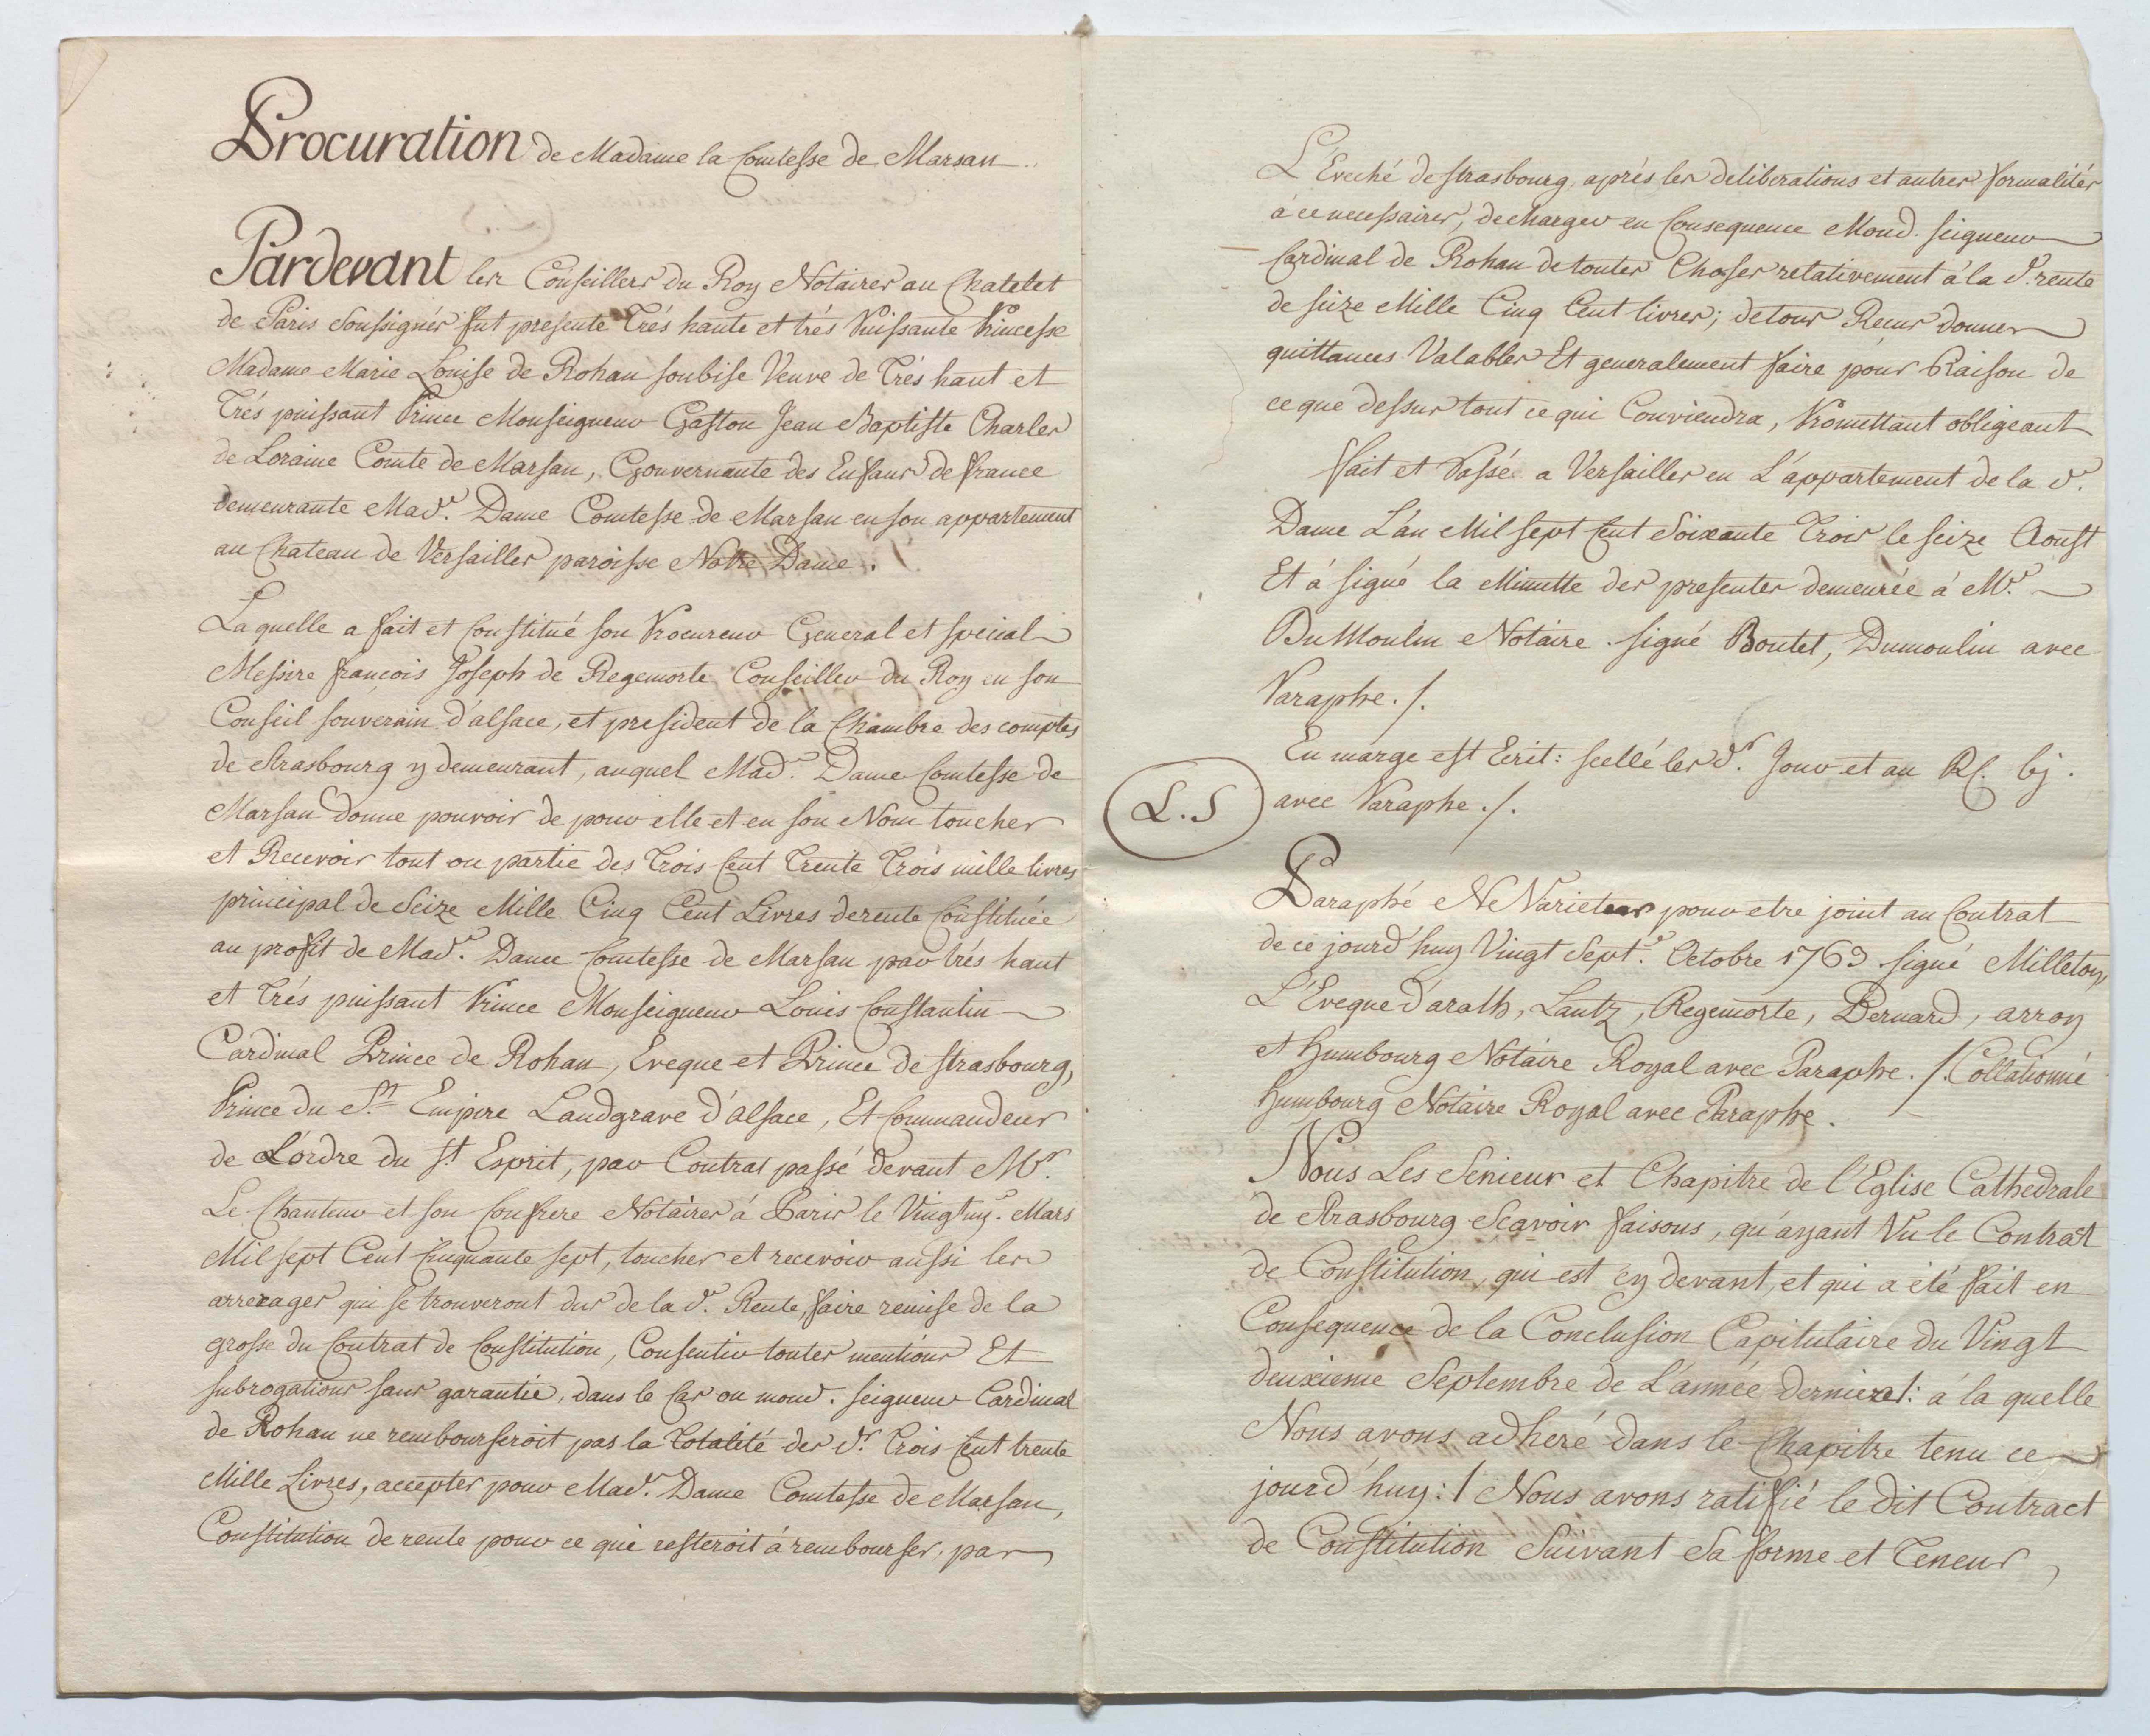 Procuration de Madame la Comtesse de Marsan
Pardevant les Conseillers du Roy Notaires au Chatelet
de Paris soussignés fut presente Trés haute et trés Puissante Princesse
Madame Marie Louise de Rohan soubise Veuve de Trés haut et
Trés puissant Prince Monseigneur Gaston Jean Baptiste Charles
de Loraine Comte de Marsan, Gouvernante des Enfans de france
demeurante Mad.e Dame Comtesse de Marsan en son appartement
au Chateau de Versailles paroisse Notre Dame.
Laquelle a fait et constitué son Procureur General et special
Messire françois Joseph de Regemorte Conseiller du Roy en son
Conseil souverain d'alsace, et president de la Chambre des comptes
de Strasbourg y demeurant, auquel Mad.e Dame Comtesse de
Marsan donne pouvoir de pour elle et en son Nom toucher
et Recevoir tout ou partie des Trois Cent Trente Trois mille livres
principal de Seize Mille Cinq Cent Livres de rente Constituée
au profit de Mad.e Dame Comtesse de Marsan par trés haut
et Trés puissant Prince Monseigneur Louis Constantin
Cardinal Prince de Rohan, Eveque et Prince de strasbourg,
Prince du St. Empire Landgrave d'alsace, Et Commandeur
de L'ordre du St Esprit, par Contrat passé devant Mr.
Le Chanteur et son Confrere Notaires à Paris le Vingt un.e Mars
Mil sept Cent Cinquante sept, toucher et recevoir aussi les
arrerages qui se trouveront dus de la d.e Rente, faire remise de la
grosse du Contrat de Constitution, Consentir toutes mentions Et
subrogations sans garantie, dans le Cas ou mond. seigneur Cardinal
de Rohan ne rembourseroit pas la totalité des d.s Trois Cent trente
Mille Livres, accepter pour Mad.e Dame Comtesse de Marsan,
Constitution de rente pour ce qui resteroit à rembourser, par
L'Eveché de strasbourg, aprés les deliberations et autres formalités
à ce necessaires, decharger en Consequence Mond. seigneur
Cardinal de Rohan de toutes Choses relativement à la d.e rente
de seize Mille Cinq Cent livres; de tous Recus donner
quittances Valables Et generalement faire pour Raison de
ce que dessus tout ce qui Conviendra, Promettant obligeant
fait et Passé a Versailles en L'appartement de la d.e
Dame L'an Mil sept Cent Soixante Trois le seize Aoust
Et à signé la Minutte des presentes demeurée à Mr.
DuMoulin Notaire. signé Boutet, Dumoulin avec
Paraphe ./.
En marge est Ecrit: scellé les d.s Jour et an
L.S avec Paraphe ./.
Paraphé Ne Varietur pour etre joint au Contrat
de ce jourd'huy Vingt Sept.e Octobre 1763 signé Milletoy
L'Eveque d'arath, Lantz, Regemorte, Bernard, arroy
et Humbourg Notaire Royal avec Paraphe ./. Collationné
Humbourg Notaire Royal avec Paraphe.
Nous Les Senieur et Chapitre de l'Eglise Cathedrale
de Strasbourg Scavoir faisons, qu'ayant Vu le Contract
de Constitution, qui est cy devant, et qui a été fait en
Consequence de la Conclusion Capitulaire du Vingt
deuxieme Septembre de L'année derniere /: à la quelle
Nous avons adheré dans le Chapitre tenu ce
jourd'huy :/ Nous avons ratifié le dit Contract
de Constitution Suivant Sa forme et Teneur,